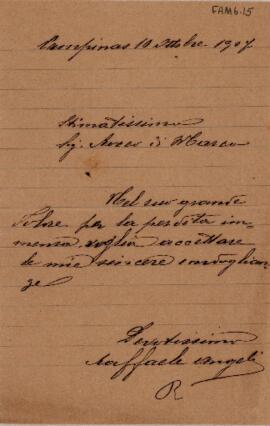 FAM6.15
Campinas 10 Ottobre. 1907
Stimatissimo
Sig.
Nel suo grande
dolore per la perdita im-
mensa, voglia accettare
le mie sincere condoglian-
ze
Devotissimo
Raffaele Angeli
R